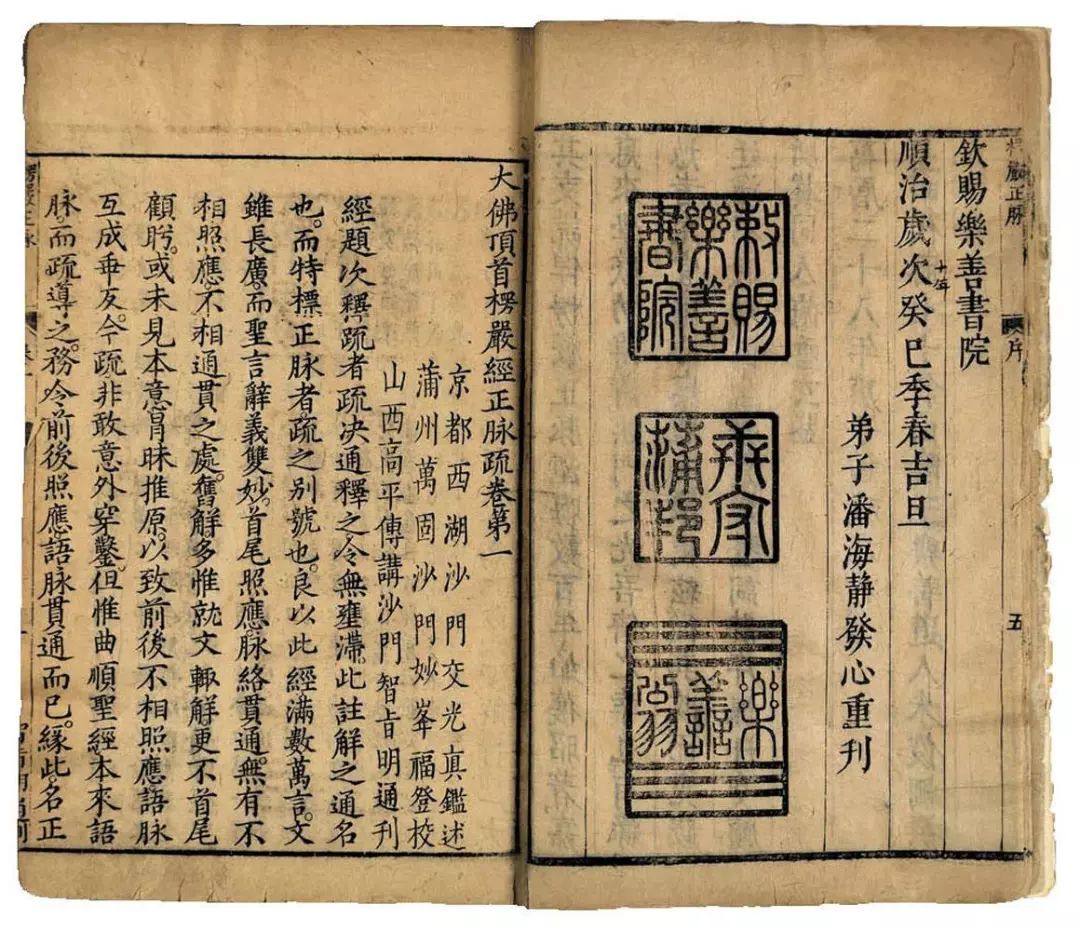 嚴正脉 序 五
欽賜樂善書院
順治十年歲次癸巳季春吉旦
弟子潘海静發心重刊
敕賜樂善書院
蒲邦
樂善
大佛頂首楞嚴經正脉疏卷第一
京都西湖沙門交光真鑑述
蒲州萬固沙門妙峯福登校
山西高平傳講沙門智旨明通刊
經題次釋疏者疏决通釋之令無壅滯。此註解之通名
也。而特標正脉者疏之别號也。良以此經滿數萬言。文
雖長廣。而聖言辭義雙妙。首尾照應。脉絡貫通。無有不
相照應。不相通貫之處。舊解多惟就文輙解更不首尾
顧眄。或未見本意肓昧推原。以致前後不相照應語脉
互成乖反。今疏非敢意外穿鑿。但惟曲順聖經本來語
脉而疏導之。務令前後照應語脉貫通而已。緣此名正